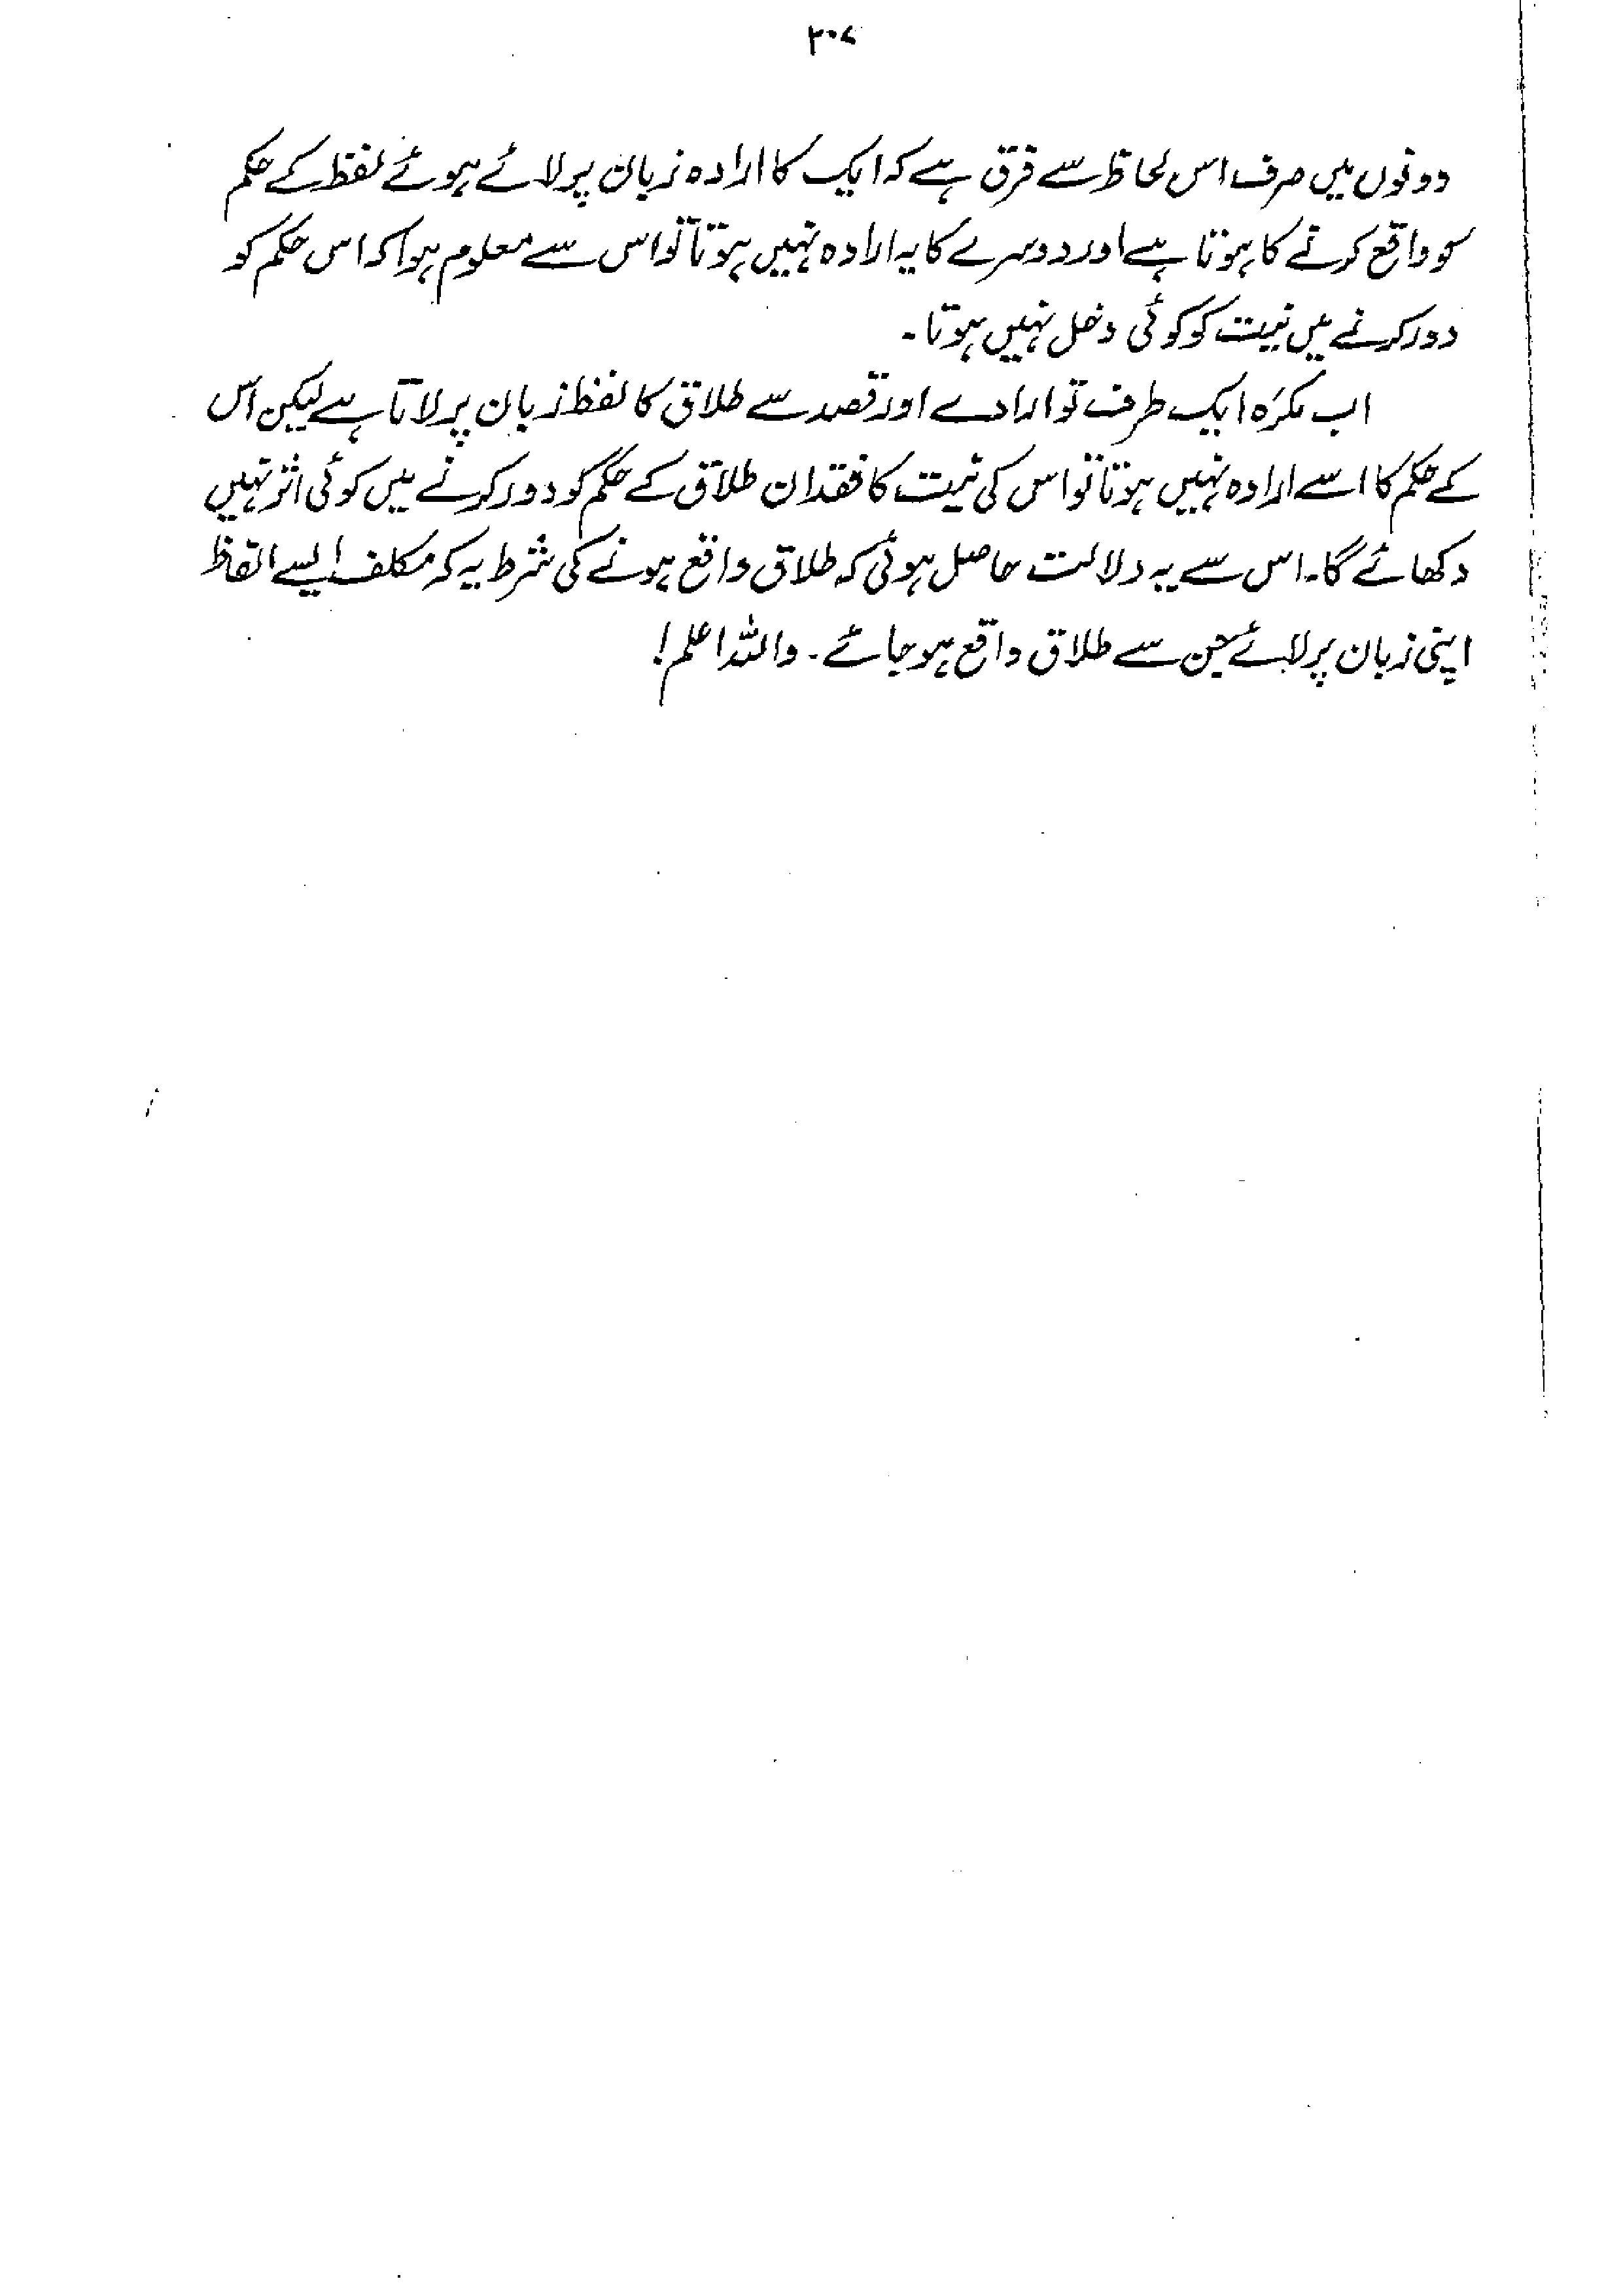 ۳۰۷
دونوں میں صرف اس لحاظ سے فرق ہے کہ ایک کا ارادہ زبان پر لائے ہوئے لفظ کے حکم
کو واقع کرنے کا ہوتا ہے اور دوسرے کا یہ ارادہ نہیں ہوتا تو اس سے معلوم ہوا کہ اس حکم کو
دور کرنے میں نیت کو کوئی دخل نہیں ہوتا۔
اب مکرَہ ایک طرف تو ارادے اور قصد سے طلاق کا لفظ زبان پر لاتا ہے لیکن اس
کے حکم کا اسے ارادہ نہیں ہوتا تو اس کی نیت کا فقدان طلاق کے حکم کو دور کرنے میں کوئی اثر نہیں
دکھائے گا۔ اس سے یہ دلالت حاصل ہوئی کہ طلاق واقع ہونے کی شرط یہ کہ مکلف ایسے الفاظ
اپنی زبان پر لائے جن سے طلاق واقع ہو جائے۔ واللہ اعلم!